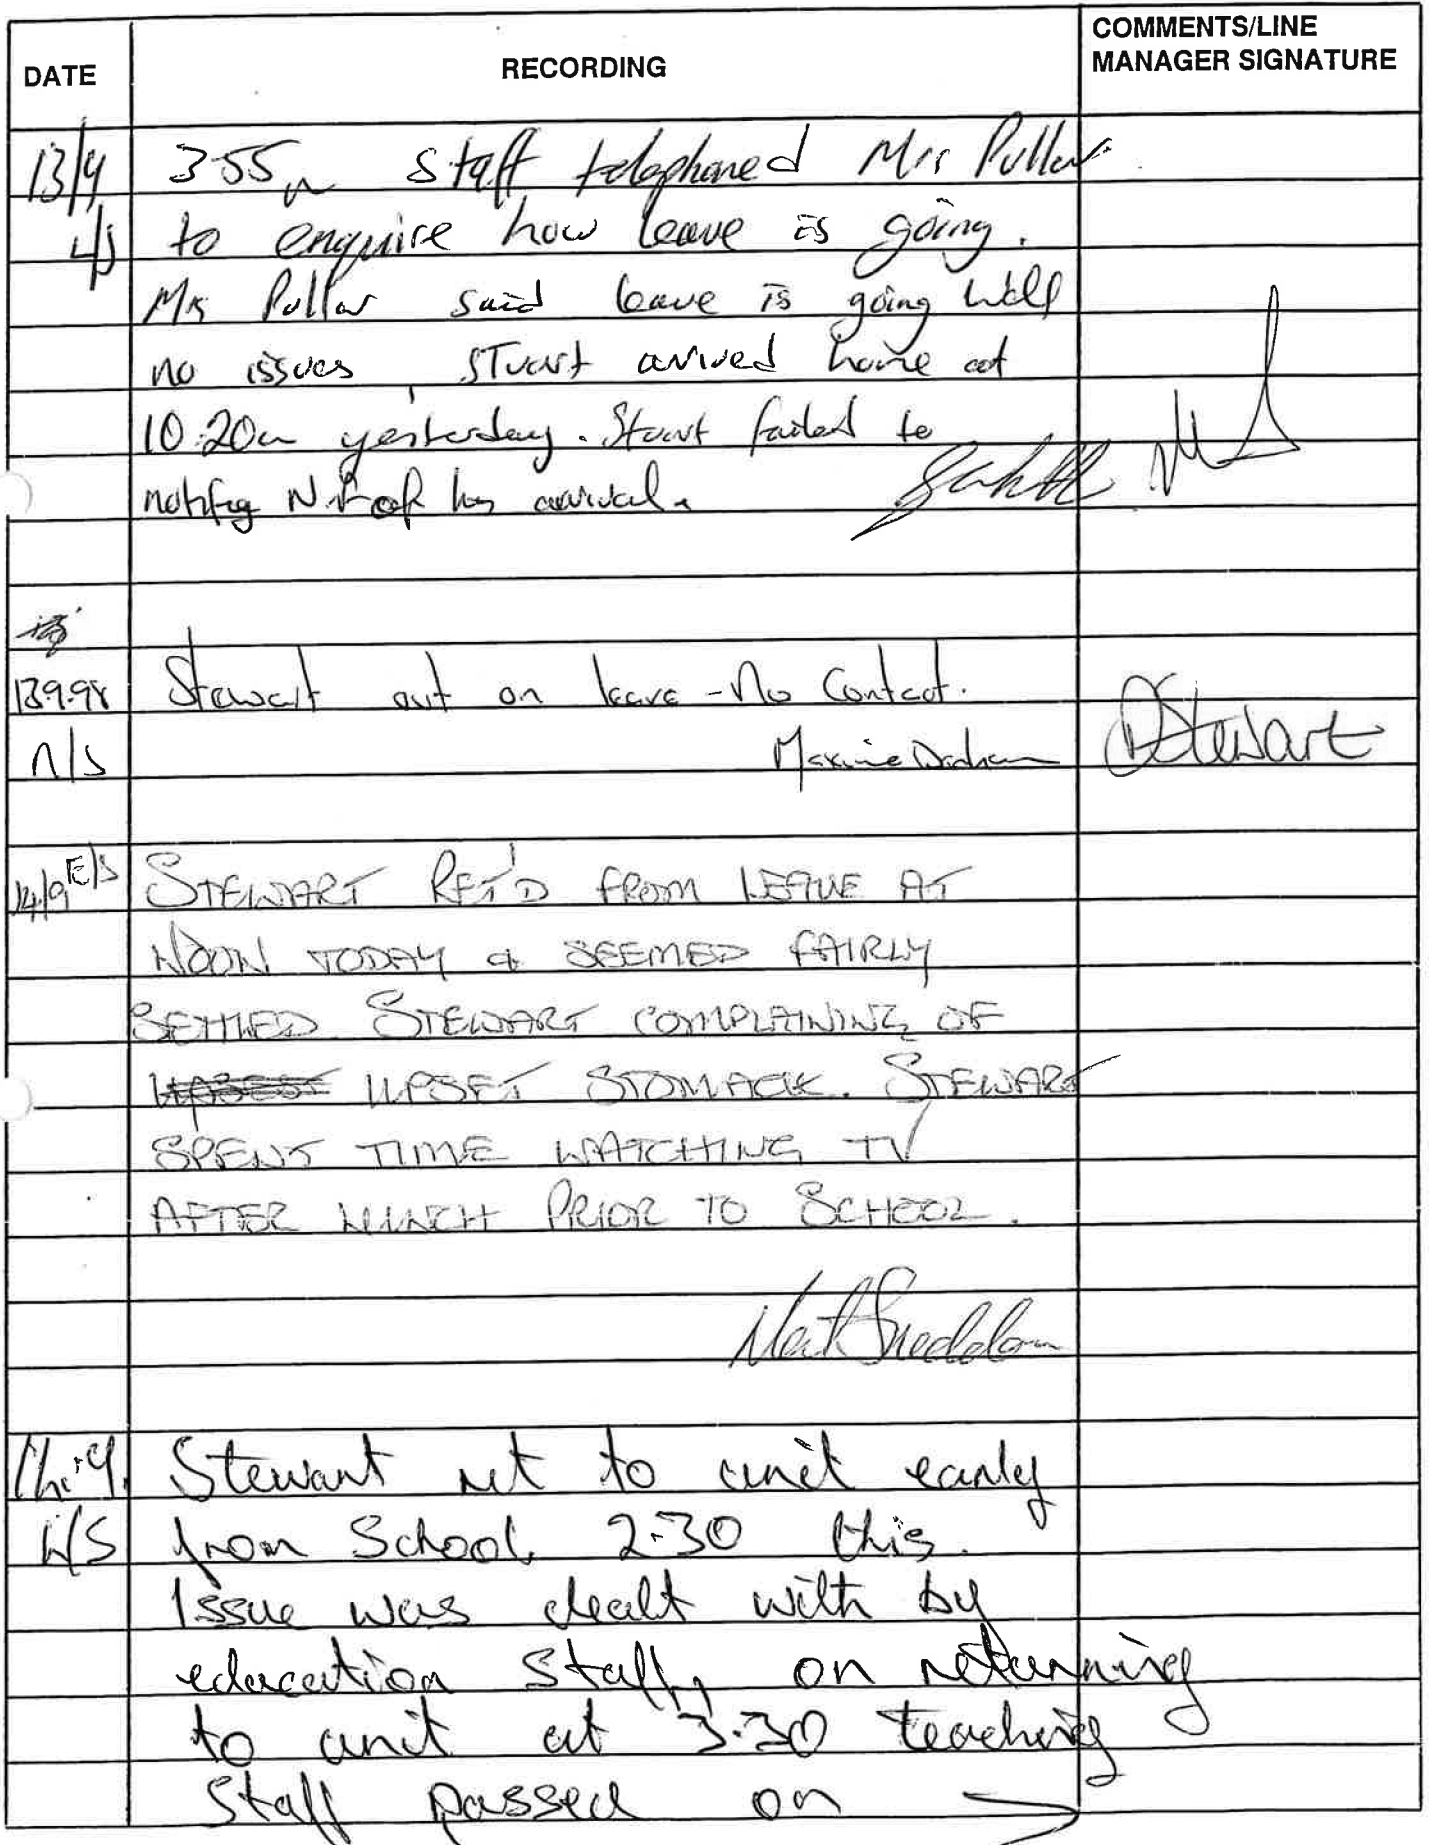 DATE RECORDING COMMENTS/LINE MANAGER SIGNATURE
13/9 3.55 Staff telephoned Mrs Pullar
L/S to enquire how leave is going.
Mrs Pullar said leave is going well
no issues, Stuart arrived home at
10:20 yesterday. Stuart failed to
notify of his arrival.
13.9.98 Stewart out on leave - No Contact.
N/S Maxine DStewart
14/9 E/S STEWART RET'D FROM LEAVE AT
NOON TODAY & SEEMED FAIRLY
SETTLED. STEWART COMPLAINING OF
UPSET STOMACK. STEWART
SPENT TIME WATCHING TV
AFTER LUNCH PRIOR TO SCHOOL.
Sneddon
14.9. Stewart ret to unit early
L/S from School 2.30 this.
Issue was dealt with by
education staff, on returning
to unit at 3.30 teaching
Staff passed on →